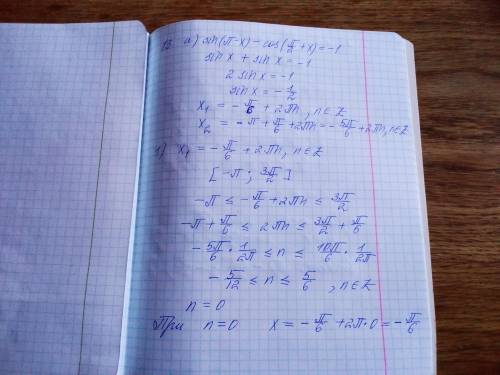 13. а) sin(π-x) - cos(π/2+x) = -1
sin x + sin x = -1
2 sin x = -1
sin x = -1/2
x₁ = -π/6 + 2πn, n∈Z
x₂ = -π + π/6 + 2πn = -5π/6 + 2πn, n∈Z
1) x₁ = -π/6 + 2πn, n∈Z
[-π; 3π/2]
-π ≤ -π/6 + 2πn ≤ 3π/2
-π + π/6 ≤ 2πn ≤ 3π/2 + π/6
-5π/6 · 1/2π ≤ n ≤ 10π/6 · 1/2π
-5/12 ≤ n ≤ 5/6, n∈Z
n=0
При n=0 x = -π/6 + 2π·0 = -π/6